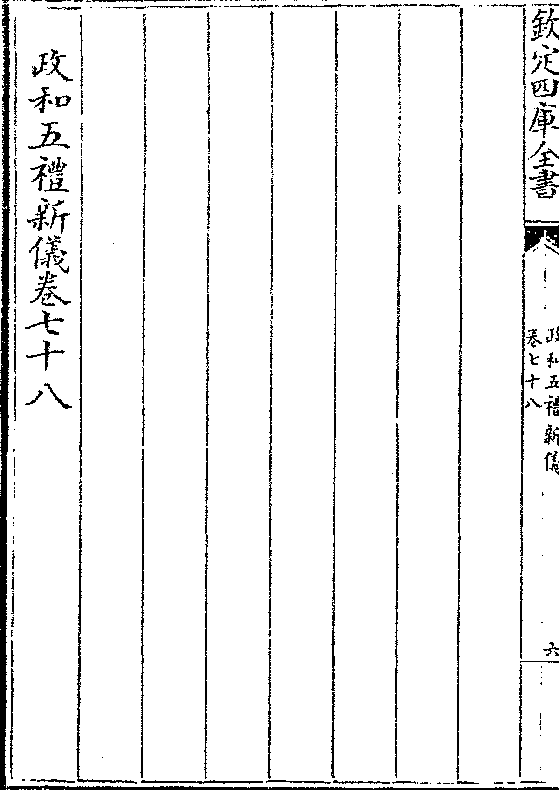 欽定四庫全書
政和五禮新儀
卷七十八
六
政和五禮新儀卷七十八